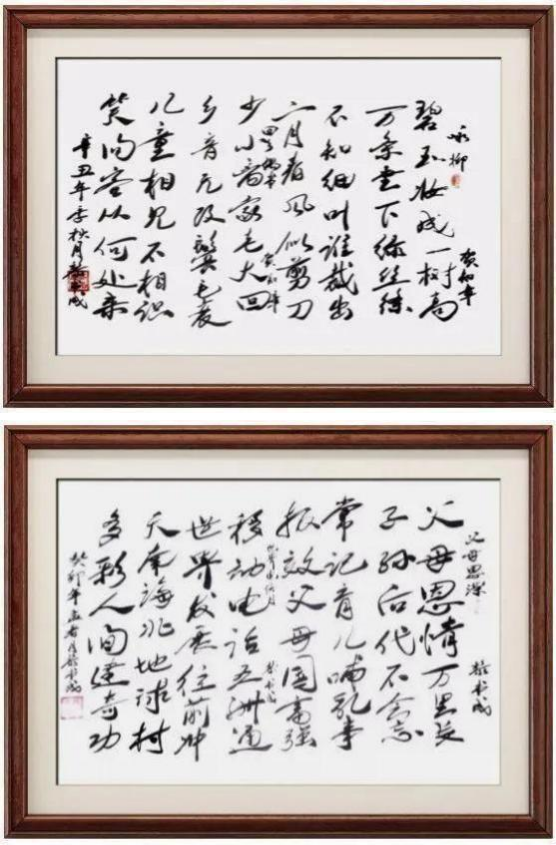 咏柳
贺知章
碧玉妆成一树高
万条垂下绿丝绦
不知细叶谁裁出
二月春风似剪刀
贺知章
少小离家老大回
乡音无改鬓毛衰
儿童相见不相识
笑问客从何处来
辛丑年季秋月 成
父母恩深
成
父母恩情万里长
子孙后代不会忘
常记育儿哺乳事
报效父母国富强
移动电话五洲通
世界发展往前冲
天南海北地球村
多彩人间建奇功
癸卯年孟春月 成